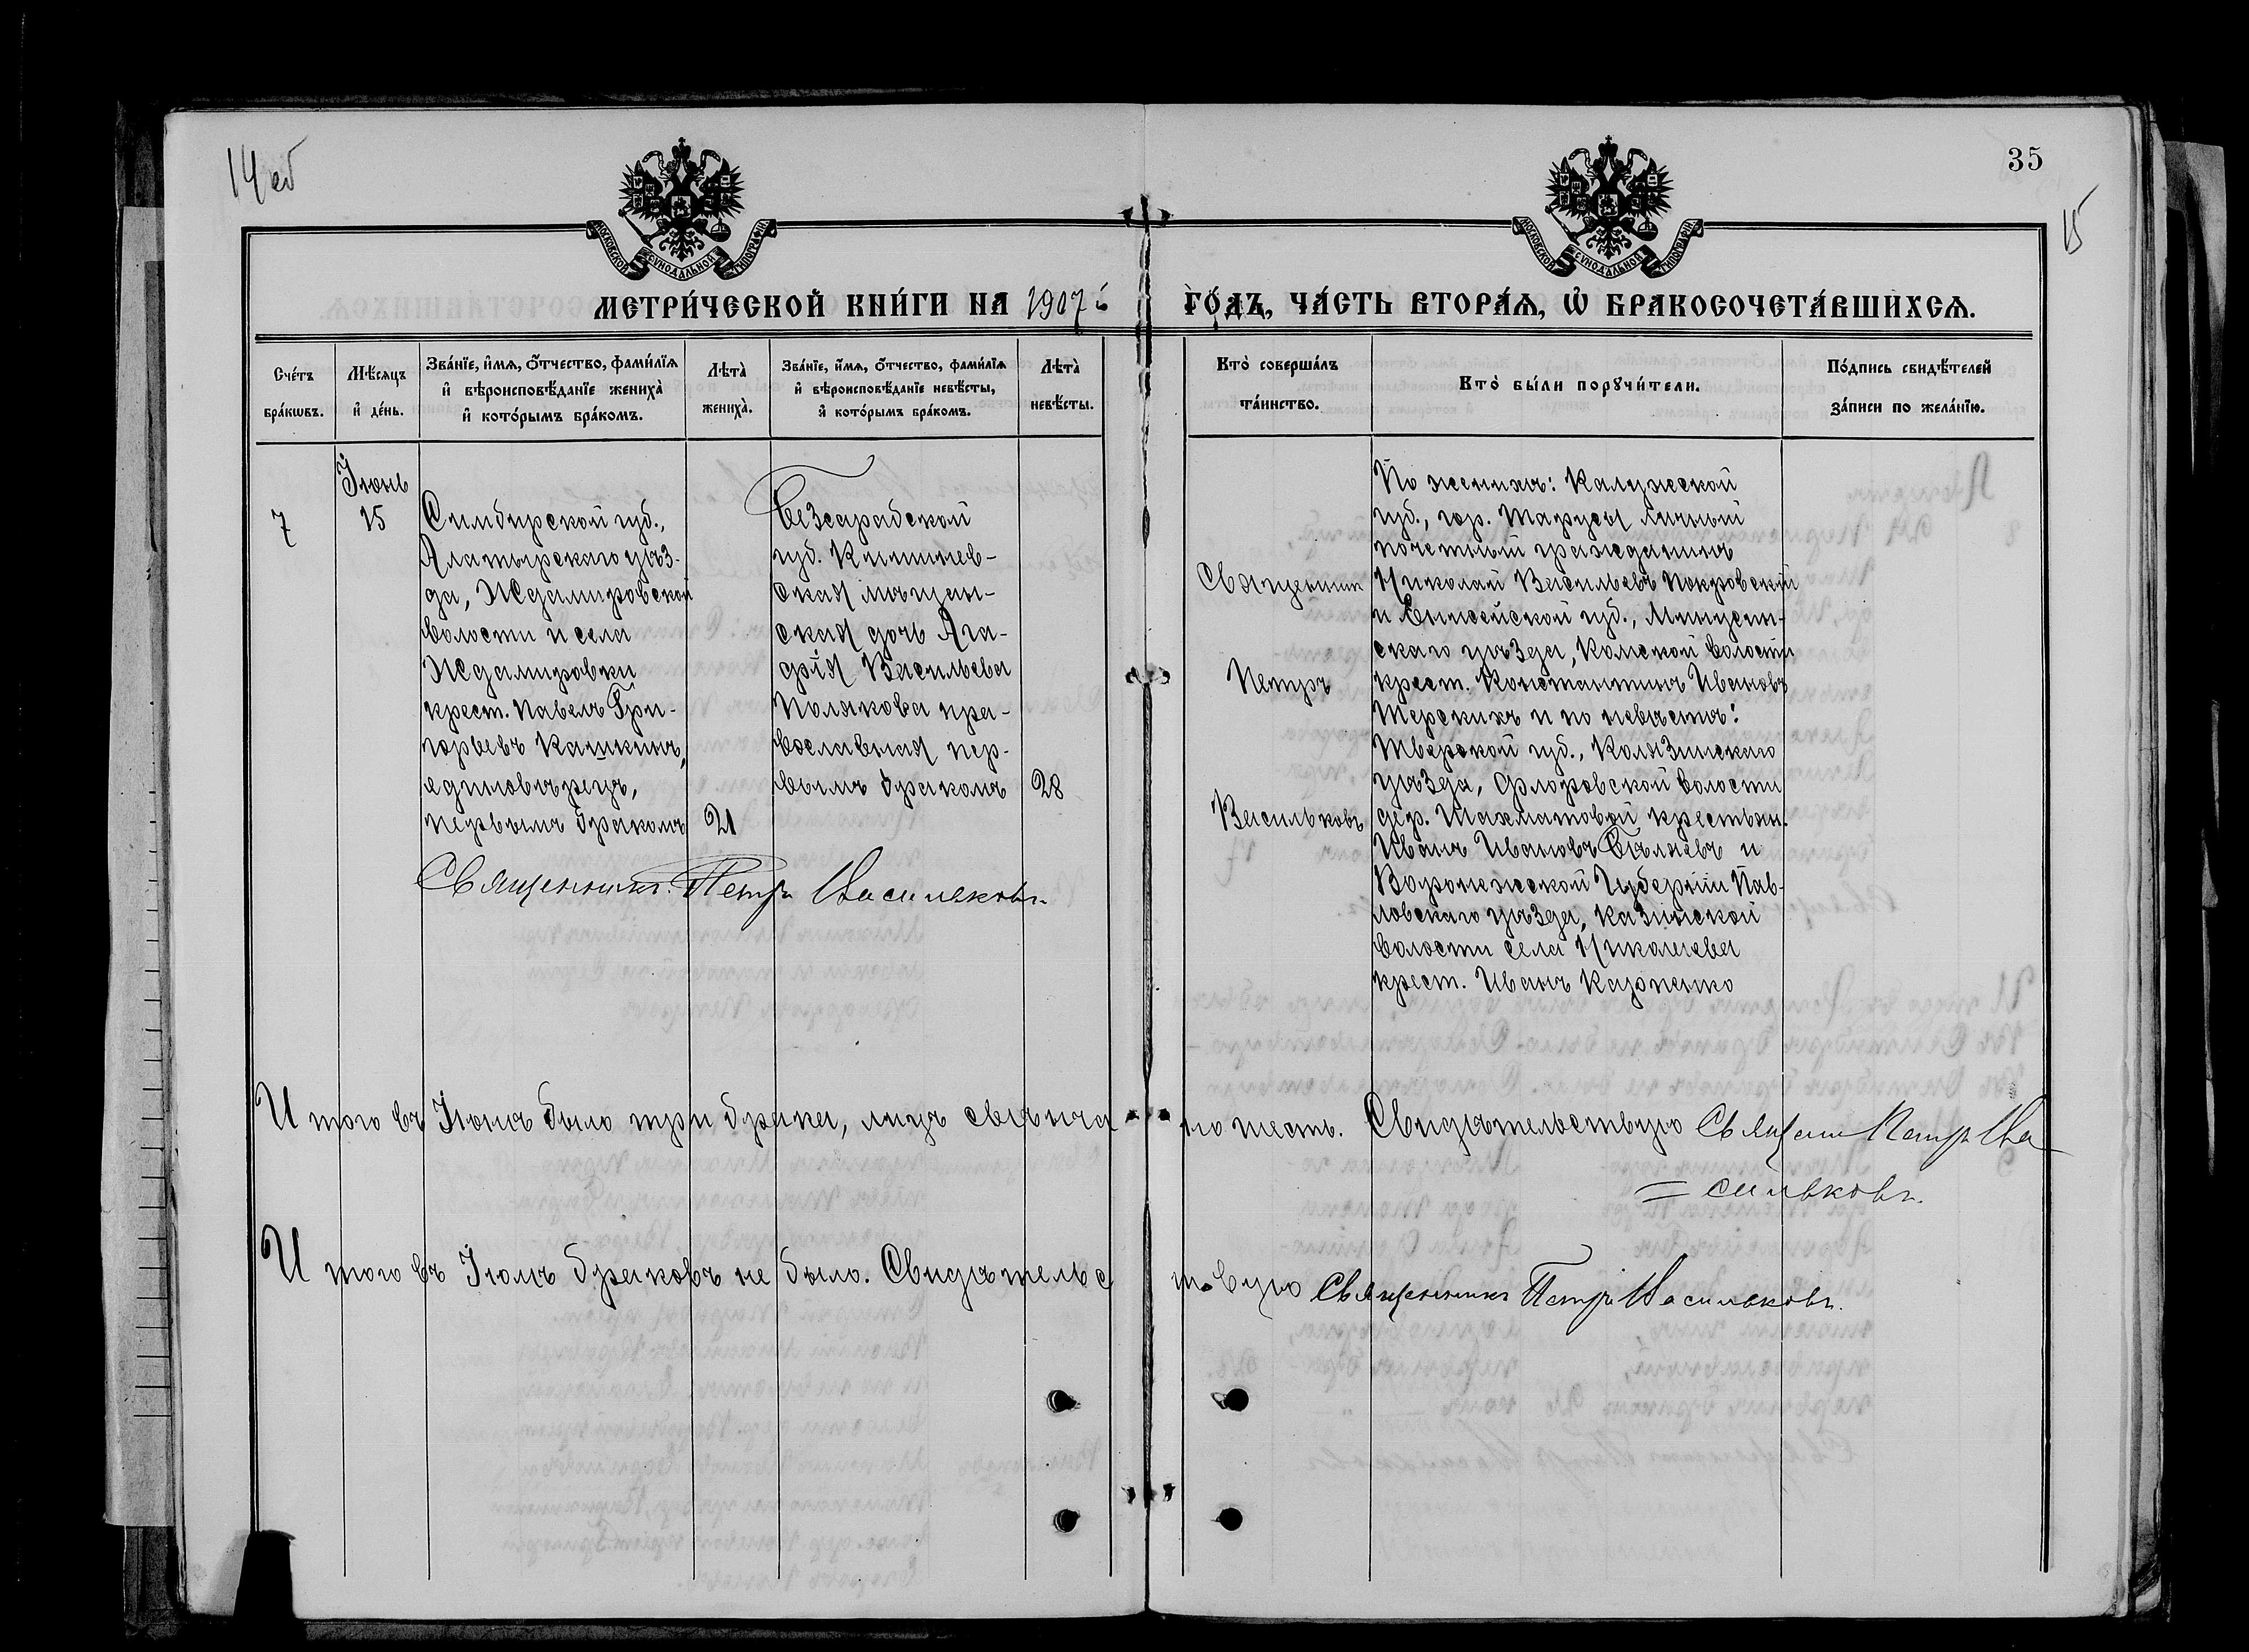 14 об
35
15
МОСКОВСКОЙ СѴНОДАЛЬНОЙ ТИПОГРАФІИ.
МОСКОВСКОЙ СѴНОДАЛЬНОЙ ТИПОГРАФІИ.
МЕТРИ́ЧЕСКОЙ КНИ́ГИ НА 1907й ГО́ДЪ, ЧА́СТЬ ВТОРА́Я, Ѡ҆ БРАКОСОЧЕТА́ВШИХСЯ.
Сче́тъ
бра́кѡвъ.
Мѣ́сяцъ
и҆ де́нь.
Зва́нїе, и҆́мя, ѻ҆́тчество, фами́лїя
и҆ вѣроисповѣ́данїе жениха̀
и҆ кото́рымъ бра́комъ.
Лѣта̀
жениха̀.
Зва́нїе, и҆́мя, ѻ҆́тчество, фами́лїя
и҆ вѣроисповѣ́данїе невѣ́сты,
и҆ кото́рымъ бра́комъ.
Лѣта̀
невѣ́сты.
Кто̀ соверша́лъ
та́инство.
Кто̀ бы́ли порꙋчи́тели.
По́дпись свидѣ́телей
за́писи по жела́нїю.
7
Іюнь
15
Симбирской губ.,
Алатырскаго уѣз-
да, Ждамировской
волости и села
Ждамировки
крест. Павелъ Гри-
горьевъ Кашкинъ,
единовѣрецъ,
первымъ бракомъ
21
Бессарабской
губ. Кишинев-
ская мѣщан-
ская дочь Ага-
фія Васильева
Полякова пра-
вославная пер-
вымъ бракомъ
28
Священникъ Петръ Васильковъ.
Священникъ
Петръ
Васильковъ
По женихѣ: Калужской
губ., гор. Тарусы личный
почетный гражданинъ
Николай Васильевъ Покровскій
и Енисейской губ., Минусин-
скаго уѣзда, Комской волости
крест. Константинъ Ивановъ
Терскихъ и по невѣстѣ:
Тверской губ., Колязинскаго
уѣзда, Флоровской волости
дер. Шахматовой крестьян.
Иванъ Ивановъ Бѣляевъ и
Воронежской Губерніи Пав-
ловскаго уѣзда, Казинской
волости села Николаева
крест. Иванъ Карпенко
Итого въ Іюнѣ было три брака, лицъ свѣнча-но шесть. Свидѣтельствую Священ Петръ Ва
= сильковъ.
Итого въ Іюлѣ браковъ не было. Свидѣтельствую Священникъ Петръ Васильковъ.